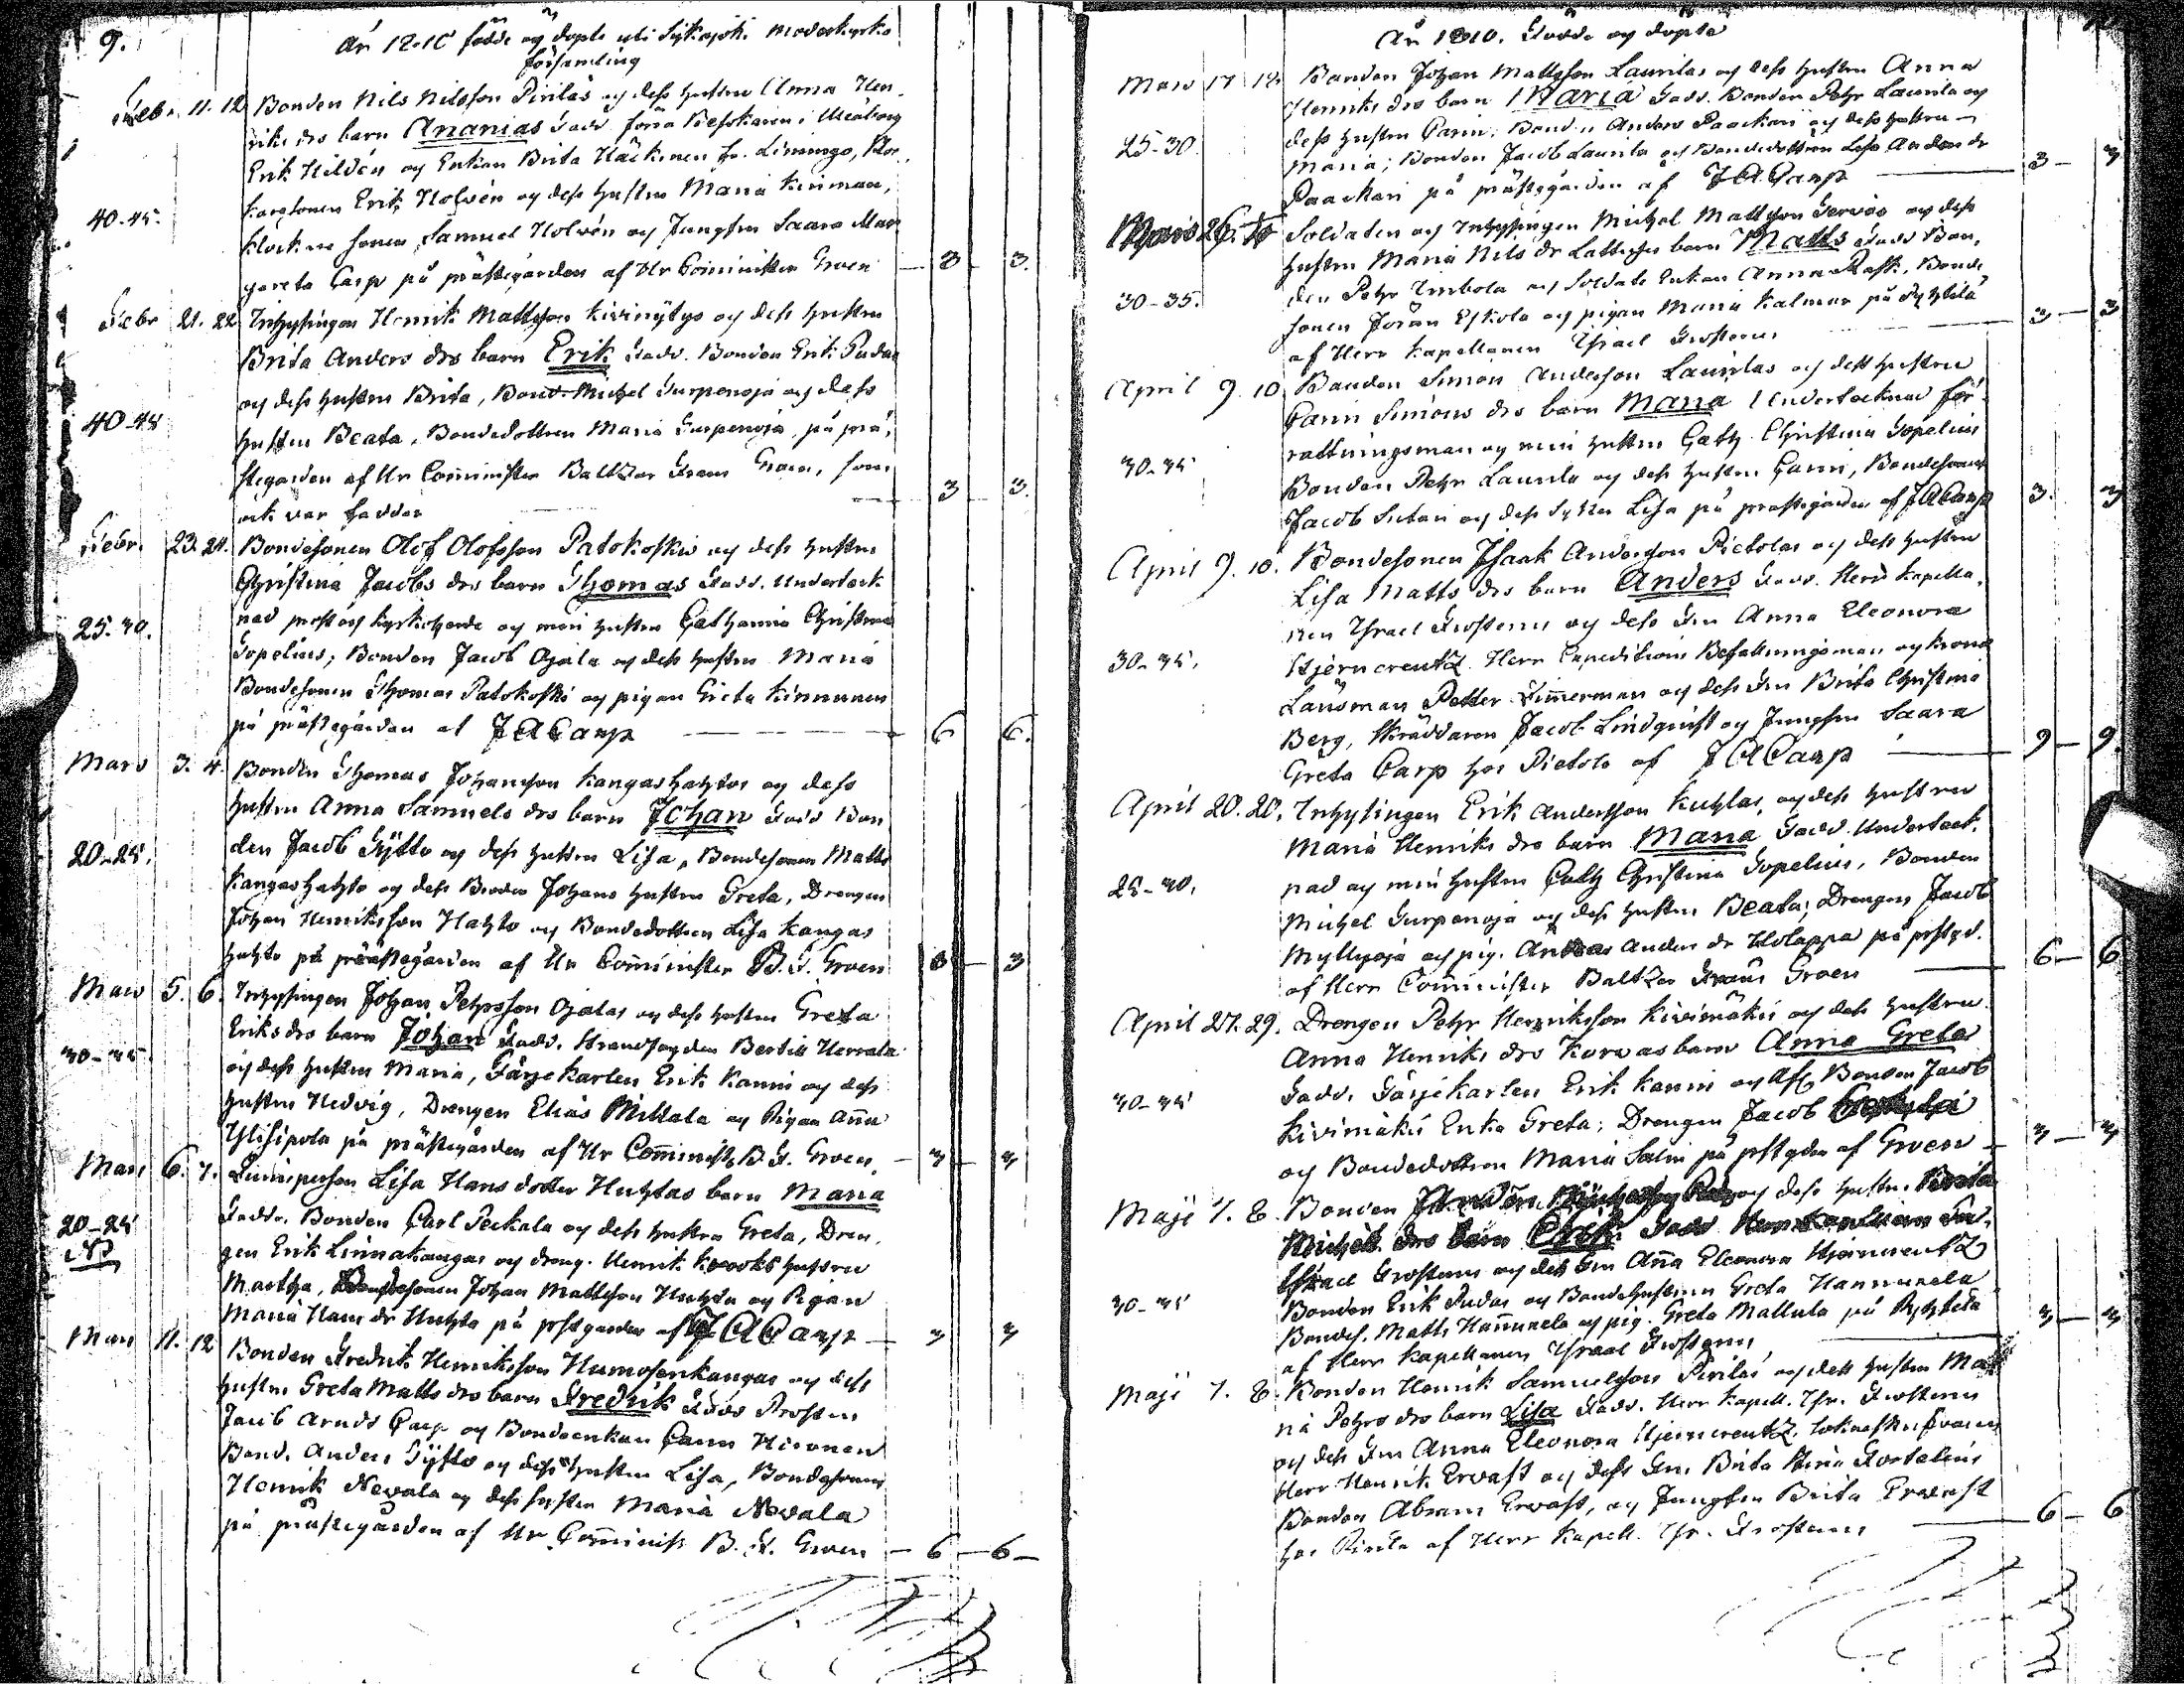 9.
År 1810 födde og döpte uti Sijkajoki moderkyrko
församling
Febr. 11. 12 Bonden Nils Nilsson Pirilas og dess hustru Anna Hen-
riks drs barn Ananias Fadd. förra Besökaren i Uleåborg
Erik Hildén og Enkan Brita Häckinen fr. Limingo, Kloc-
karesonen Erik Holvén og dess hustru Maria Keriman,
40-45. Klockare sonen Samuel Holvén og Jungfru Saara Mar
gareta Carp på prästegården af Hr Comminister Groen 3 3.
Febr 21. 22 Inhysingen Henrik Mattsson Kivinytys og dess hustru
Brita Anders drs barn Erik Fadd. Bonden Erik Pudas
og dess hustru Brita, Bond. Michel Turpenoja og dess
40-45 hustru Beata, Bondedottren Maria Turpenoja på prä-
stegården af Hr Comminister Baltzar Frans Groen, som
ock var fadder 3 3.
Febr. 23. 24. Bondesonen Olof Olofsson Patokoski og dess hustru
Christina Jacobs drs barn Thomas Fadd. Underteck
25. 30. nad prost og kyrkoherde og min hustru Catharina Christina
Topelius; Bonden Jacob Ojala og dess hustru Maria
Bondesonen Thomas Patokoski og pigan Greta Kinnunen
på prästegården af J A Carp 6 6.
Mars 3. 4. Bonden Thomas Johansson Kangashahtos og dess
hustru Anna Samuels drs barn Johan Fadd Bon
20-25. den Jacob Tÿtto og dess hustru Lisa, Bondesonen Matts
Kangashahto og dess Broder Johans hustru Greta, Drengen
Johan Henriksson Hahto og Bondedottren Lisa Kangas
hahto på prästegården af Hr Comminister B. F. Groen 3 3
Mars 5. 6. Inhysingen Johan Pehrsson Ojalas og dess hustru Greta
Eriks drs barn Johan Fadd. Strandfogden Bertil Herrala
30-35 og dess hustru Maria, Färjekarlen Erik Kanni og dess
hustru Hedvig, Drengen Elias Mittala og Pigan Anna
Ylisipola på prästegården af Hr Comminist. B. F. Groen. 3 3
Mars 6. 7. Qvinsperson Lisa Hans dotter Huhtas barn Maria
20-25 Fadd. Bonden Carl Peckala og dess hustru Greta, Dren-
gen Erik Linnakangas og dreng. Henrik Krooks hustru
Martha, Bondesonen Johan Mattsson Huhta og Pigan
Maria Hans dr Huhta på prstgården af J A Carp 3 3
Mars 11. 12 Bonden Fredrik Henriksson Humosenkangas og dess
hustru Greta Matts drs barn Fredrik Fadd Prosten
Jacob Arnds Carp og Bondeenkan Carin Hironen
Bond. Anders Tÿtto og dess hustru Lisa, Bondesonen
Henrik Nevala og dess syster Maria Nevala
på prästegården af Hr Comminist. B. F. Groen 6 6
År 1810. Födde og döpte
Mars 17 18. Bonden Johan Mattsson Laurilas og dess hustru Anna
Henriks drs barn Maria Fadd. Bonden Pehr Laurila og
25-30. dess hustru Carin; Bonden Anders Paackari og dess hustru
Maria; Bonden Jacob Laurila og Bondedottren Lisa Anders dr
Paackari på prästegården af J A Carp 3 3
Mars Soldaten og Inhysingen Michel Mattsson Servas og dess
hustru Maria Nils dr barn Matts Fadd Bon-
30-35. den Pehr Imbola og Soldats Enkan Anna Rask. Bonde
sonen Jöran Eskola og pigan Maria Kalmar på
af Herr Kapellanen Israel Frosterus 3 3
April 9. 10 Bonden Simon Andersson Laurilas og dess hustru
Carin Simons drs barn Maria Undertecknad för-
30-35 rättningsman og min hustru Cath. Christina Topelius
Bonden Pehr Laurila og dess hustru Carin, Bondesonen
Jacob Sutari og dess Syster Lisa på prästegården af J A Carp 3. 3
April 9. 10. Bondesonen Isaak Andersson Pietolas og dess hustru
Lisa Matts drs barn Anders Fadd. Herr Kapella-
nen Israel Frosterus og dess Fru Anna Eleonora
30-35. Hjerncreutz. Herr Expeditions Befallningsman og Krono
Länsman Petter Zimmerman og dess Fru Brita Christina
Berg, Skräddaren Jacob Lindqvist og Jungfru Saara
Greta Carp hos Pietola af J A Carp 9 9.
April 20. 20. Inhysingen Erik Andersson Kuhlas og dess hustru
Maria Henriks drs barn Maria Fadd. Underteck-
25-30. nad og min hustru Cath Christina Topelius, Bonden
Michel Turpenoja og dess hustru Beata; Drengen Jacob
Myllyoja og pig. Anders dr Holappa på prstgd.
af Herr Comminister Baltzar Frans Groen 6 6
April 27. 29. Drengen Pehr Henriksson Kivimäkis og dess hustru
Anna Henriks drs Korvas barn Anna Greta
30-35 Fadd. Färjekarlen Erik Kanni og Bonden Jacob
Kivimäkis Enka Greta; Drengen Jacob
og Bondedottren Maria Salin på prstgden af Groen 3 3
Maji 7. 8. Bonden og dess hustru Brita
Michels drs barn Erik Fadd Herr
Israel Frosterus og dess Fru Anna Eleonora Hjerncreutz
30-35 Bonden Erik Pudas og Bondehustrun Greta Hannunela
Bondes. Matts Hannunela og pig. Greta Mattula på
af Herr Kapellanen Israel Frosterus 3 3
Maji 7. 8. Bonden Henrik Samuelsson Pirilas og dess hustru Mari
na Pehrs drs barn Lisa Fadd. Herr Kapell. Isr. Frosterus
og dess Fru Anna Eleonora Hjerncreutz.
Herr Henrik Ervast og dess Fru Brita Stina Forbelius
Bonden Abram Ervast, og Jungfru Brita Ervast
hos Pirila af Herr Kapell. Isr. Frosterus 6 6